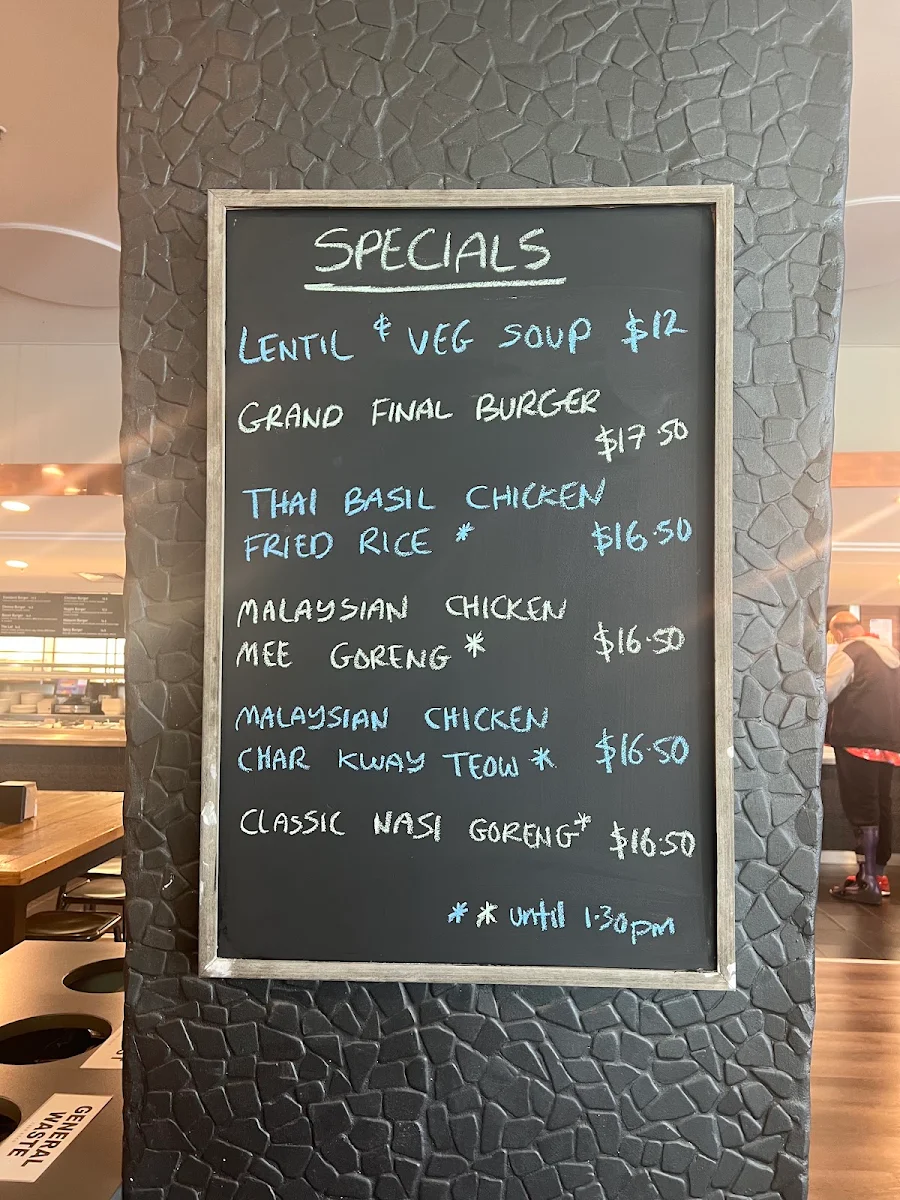 SPECIALS
LENTIL & VEG SOUP $12
GRAND FINAL BURGER
$17.50
THAI BASIL CHICKEN
FRIED RICE * $16.50
MALAYSIAN CHICKEN
MEE GORENG * $16.50
MALAYSIAN CHICKEN
CHAR KWAY TEOW * $16.50
CLASSIC NASI GORENG* $16.50
* * until 1.30pm
GENERAL
WASTE